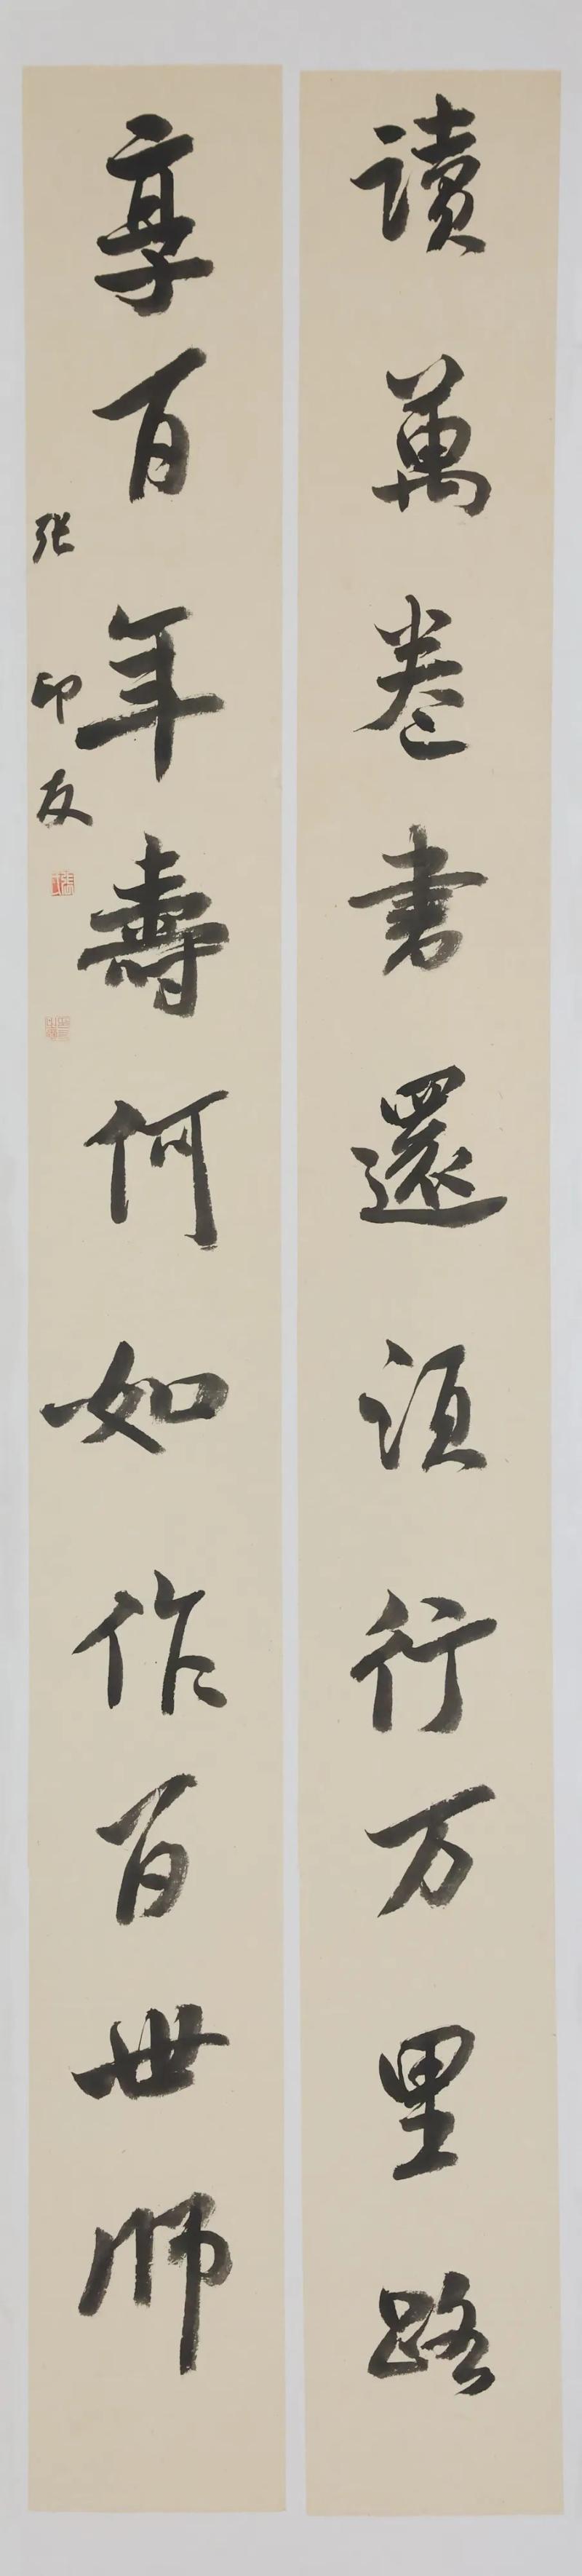 讀萬卷書還須行万里路
享百年壽何如作百世师
张印友